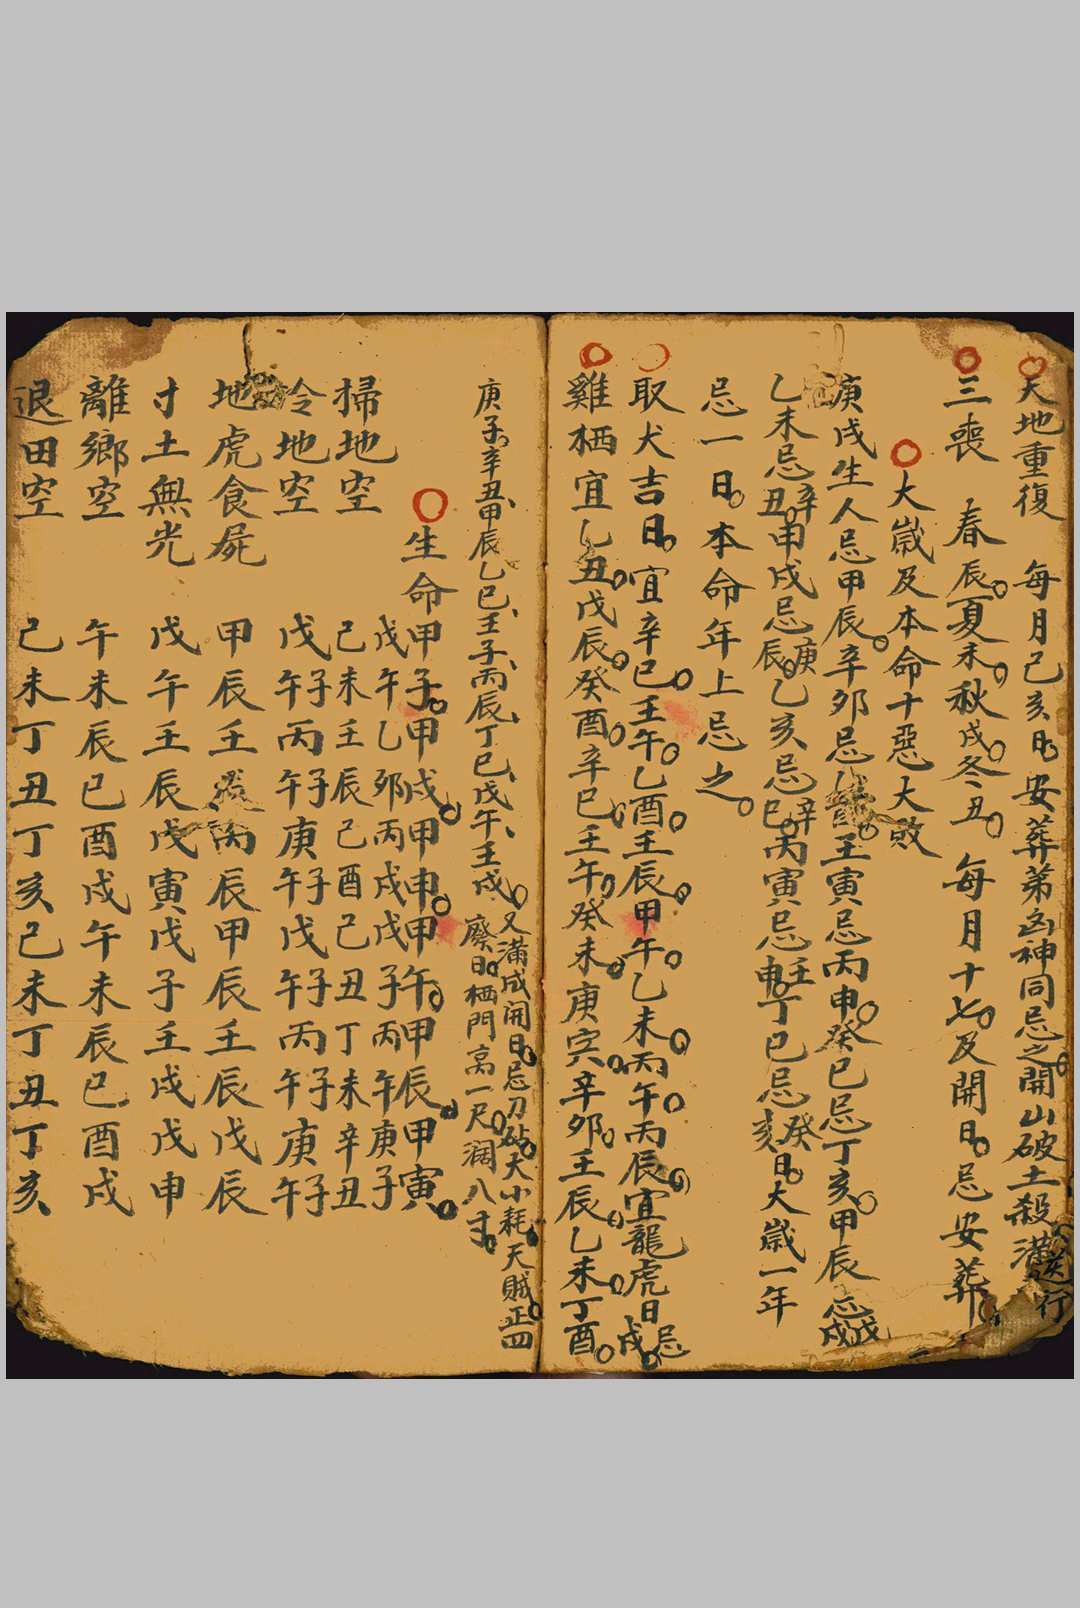 天地重復 每月己亥日安葬第凶神同忌之開山破土殺滿送行
三喪 春辰夏未秋戌冬丑每月十七及開日忌安葬
大歲及本命十惡大敗
庚戌生人忌甲辰辛卯忌壬寅忌丙申癸巳忌丁亥甲辰忌戊戌
乙未忌辛丑甲戌忌庚辰乙亥忌辛巳丙寅忌壬申丁巳忌癸亥日大歲一年
忌一日本命年上忌之
取犬吉日宜辛巳壬午乙酉壬辰甲午乙未丙午丙辰宜龍虎日忌戌
雞栖宜乙丑戊辰癸酉辛巳壬午癸未庚寅辛卯壬辰乙未丁酉
庚子辛丑甲辰乙巳壬子丙辰丁巳戊午壬戌又滿成開日忌刀砧大小耗天賊正四
廢日栖門高一尺濶八寸
生命甲子甲戌甲申甲午甲辰甲寅
戊午乙卯丙戌戊子丙午庚子
掃地空 己未壬辰己酉己丑丁未辛丑
冷地空 戊午子丙午子庚午子戊午子丙午子庚午子
地虎食屍 甲辰壬丙辰甲辰壬辰戊辰
寸土無光 戊午壬辰戊寅戊子壬戌戊申
離鄉空 午未辰巳酉戌午未辰巳酉戌
退田空 己未丁丑丁亥己未丁丑丁亥